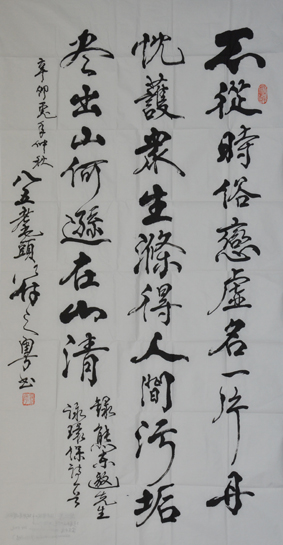 不從時俗戀虛名一片丹
忱護衆生滌得人間污垢
尽出山何遜在山清
錄熊東遨先生
詠環保詩一首
辛卯兎年仲秋
八五耄頭